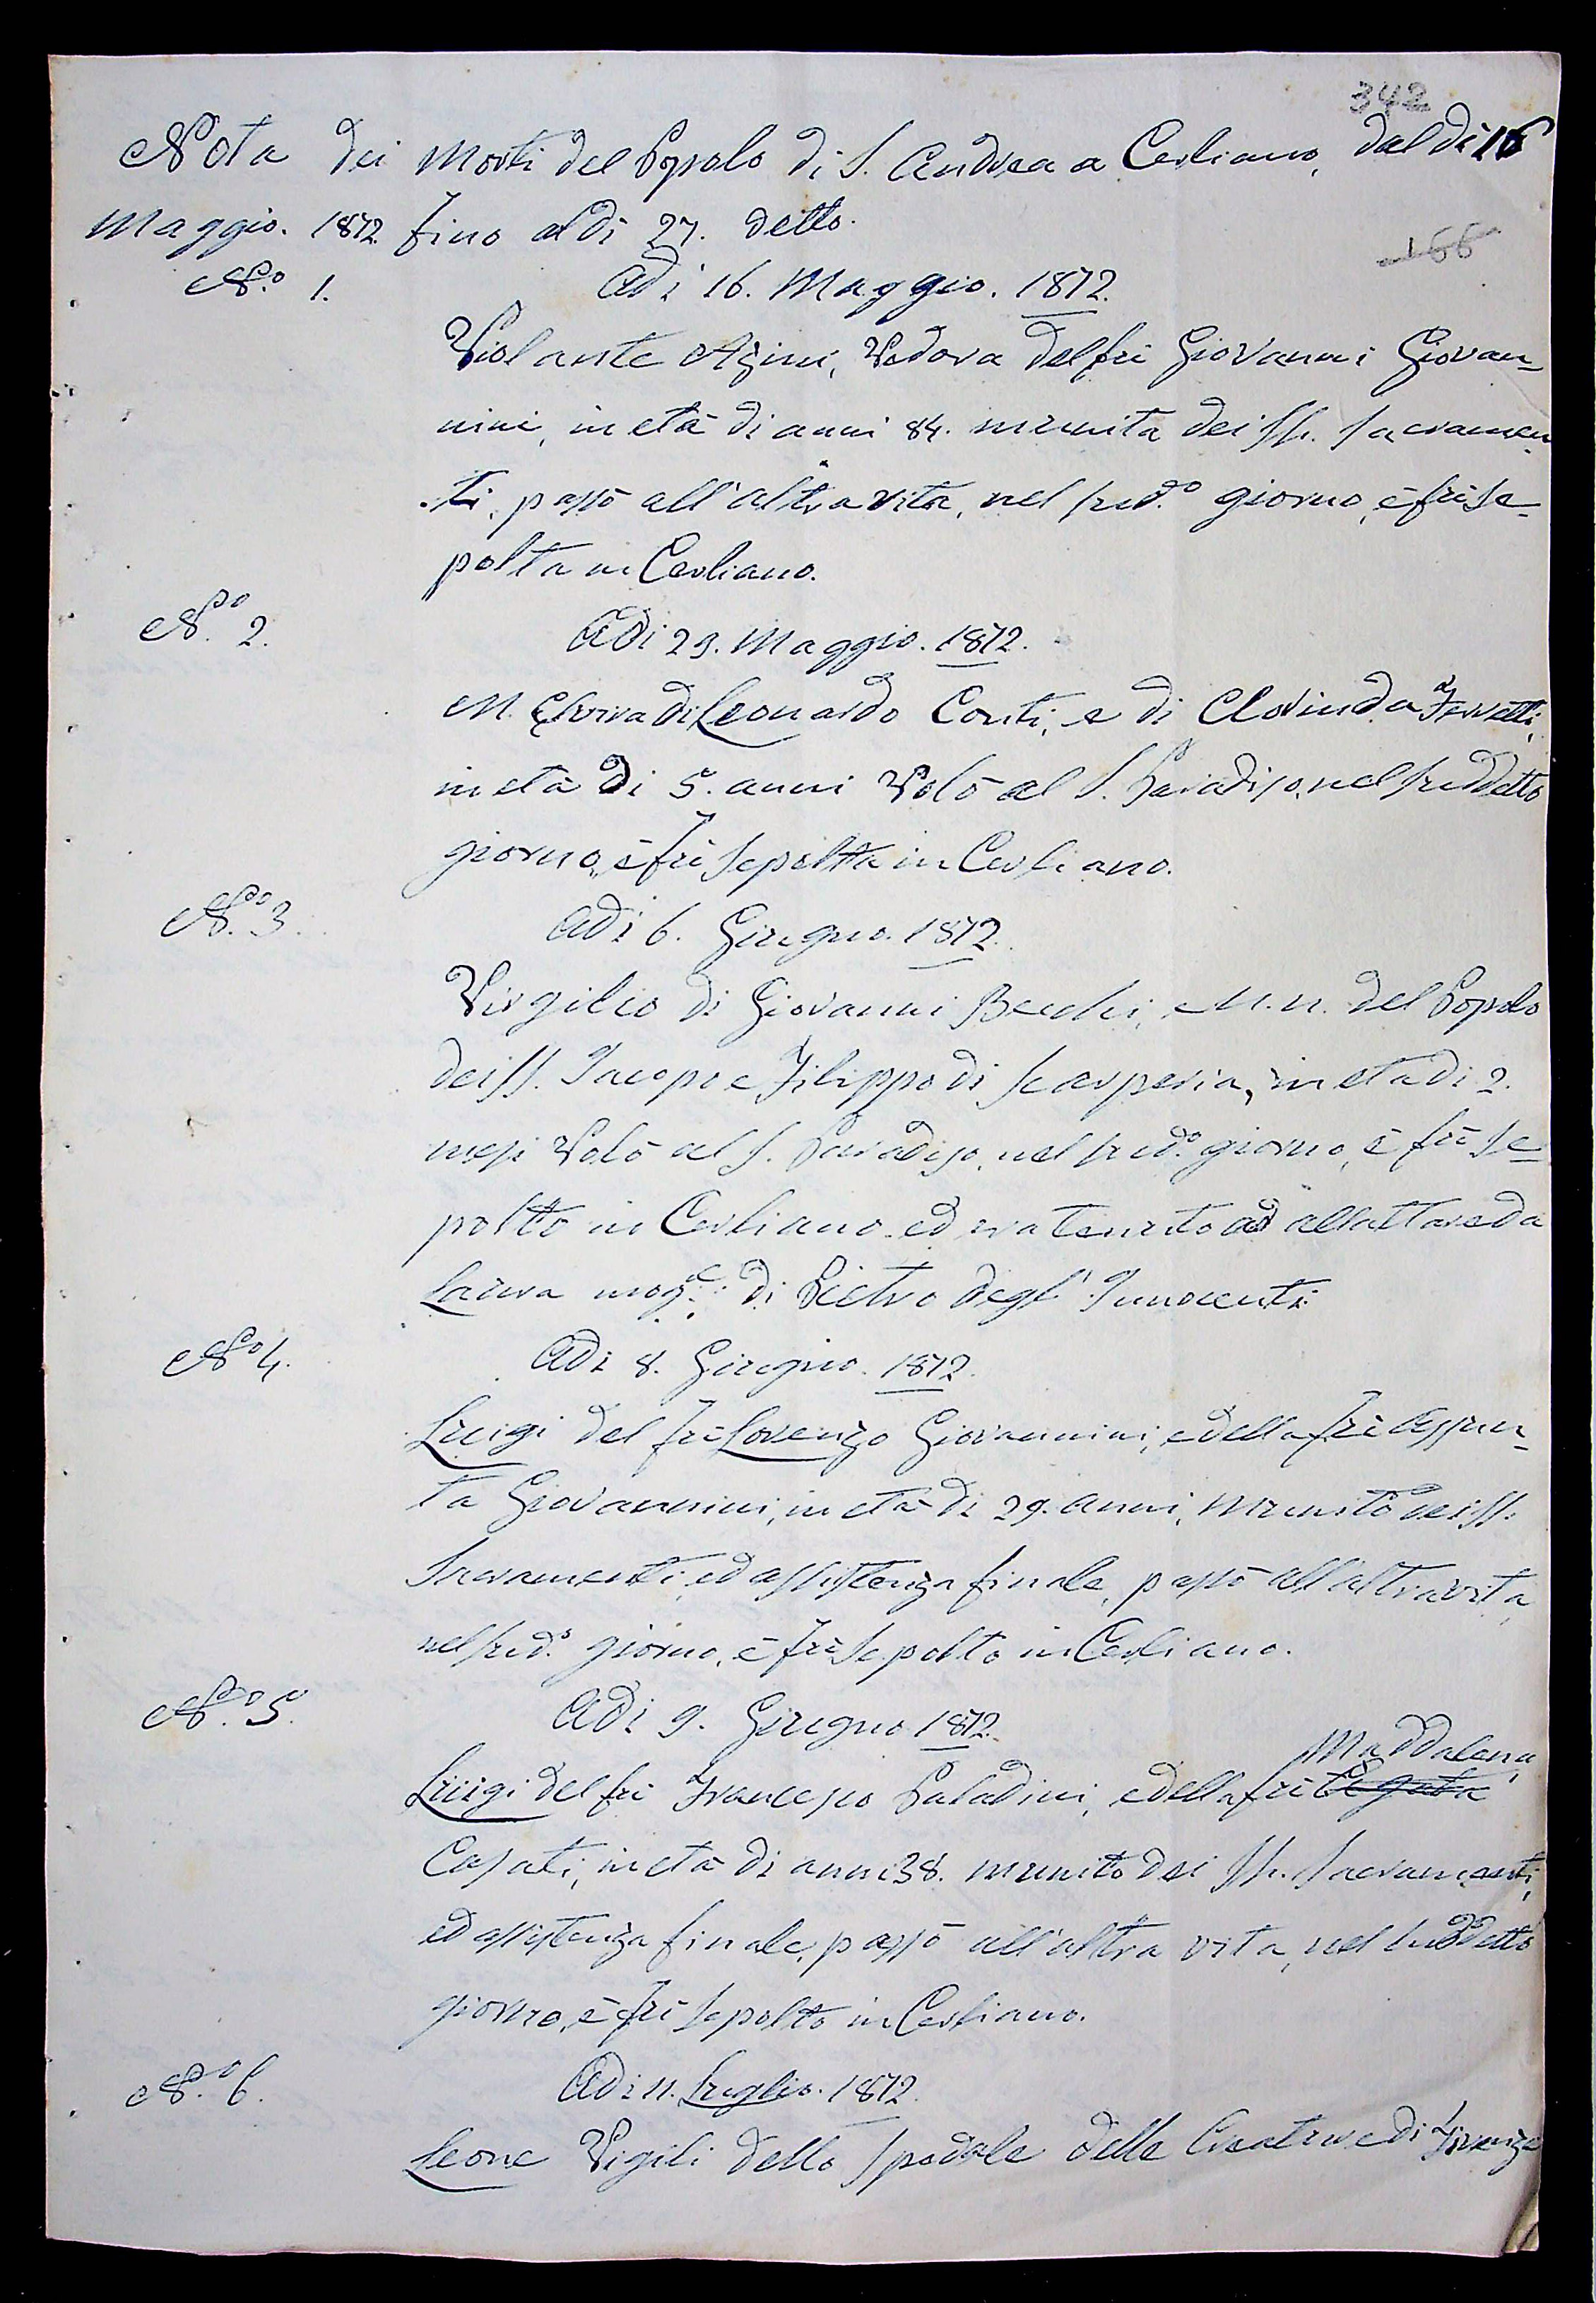 342
Nota dei Morti del Popolo di S. Andrea a Cerliano, dal dì 16
Maggio. 1872. fino al dì 27. detto.
166
N.o 1. Adì 16. Maggio. 1872.
Violante Azini, Vedova del fù Giovanni Giovan-
nini, in età di anni 84. munita dei SS. Sacramen-
ti, passò all'altra vita, nel sud.o giorno, e fù se-
polta in Cerliano.
N.o 2. Adì 29. Maggio. 1872.
M. di Leonardo Conti, e di Clorinda Ferretti,
in età di 5. anni Volò al S. Paradiso, nel suddetto
giorno, e fù sepolta in Cerliano.
N.o 3. Adì 6. Giugno. 1872.
Virgilio di Giovanni Becchi, e N. N. del Popolo
dei SS. Jacopo e Filippo di Scarperia, in età di 2.
mesi Volò al S. Paradiso, nel sud.o giorno, e fù se-
polto in Cerliano. ed era tenuto ad allattare da
Laura mog.e di Pietro Degl'Innocenti
N.o 4. Adì 8. Giugno. 1872.
Luigi del fù Lorenzo Giovannini, e della fù Assun-
ta Giovannini, in età di 29. anni, munito dei SS.
Sacramenti, ed assistenza finale, passò all'altra vita,
nel sud.o giorno, e fù sepolto in Cerliano.
N.o 5. Adì 9. Giugno 1872.
Maddalena
Luigi del fù Francesco Paladini, e della fù
Casati, in età di anni 38. munito dei SS. Sacramenti,
ed assistenza finale, passò all'altra vita, nel suddetto
giorno, e fù sepolto in Cerliano.
N.o 6. Adì 11. Luglio. 1872.
Leone Vigili dello Spedale delle Creature di Firenze